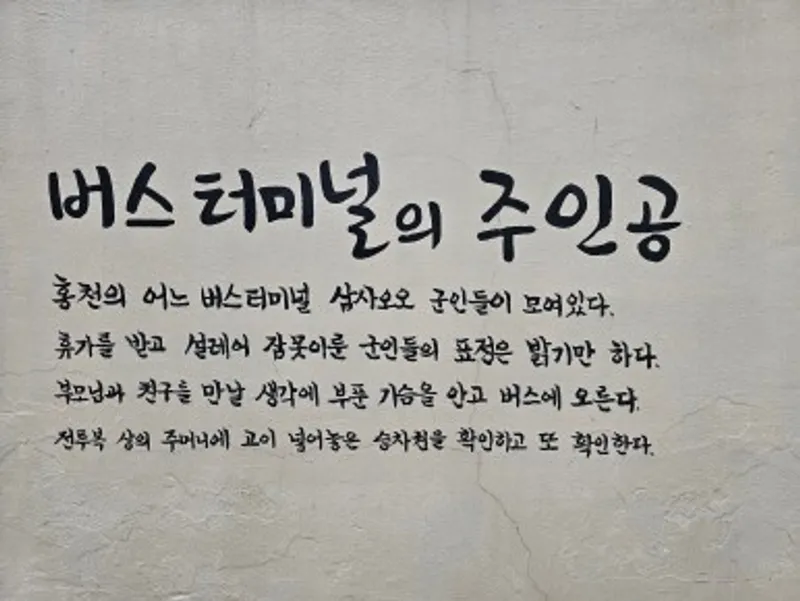 버스터미널의 주인공
홍천의 어느 버스터미널 삼사오오 군인들이 모여있다.
휴가를 받고 설레어 잠못이룬 군인들의 표정은 밝기만 하다.
부모님과 친구를 만날 생각에 부푼 가슴을 안고 버스에 오른다.
전투복 상의 주머니에 고이 넣어놓은 승차권을 확인하고 또 확인한다.